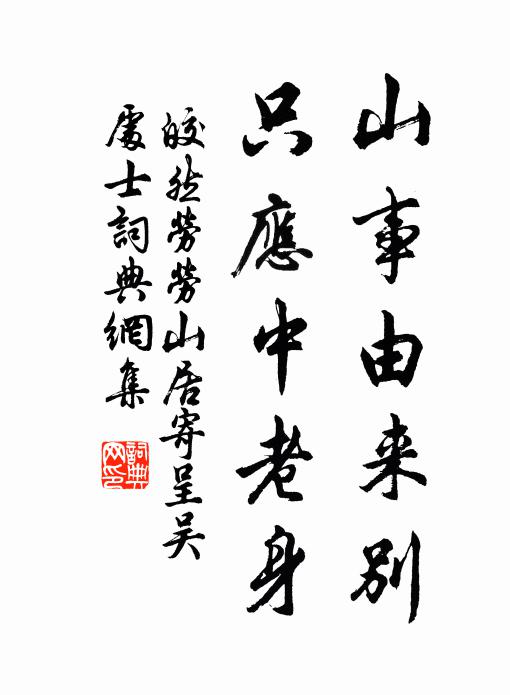 山事由来別
只應中老身
皎然勞勞山居寄呈吳
處士詞典網集
詞典網印